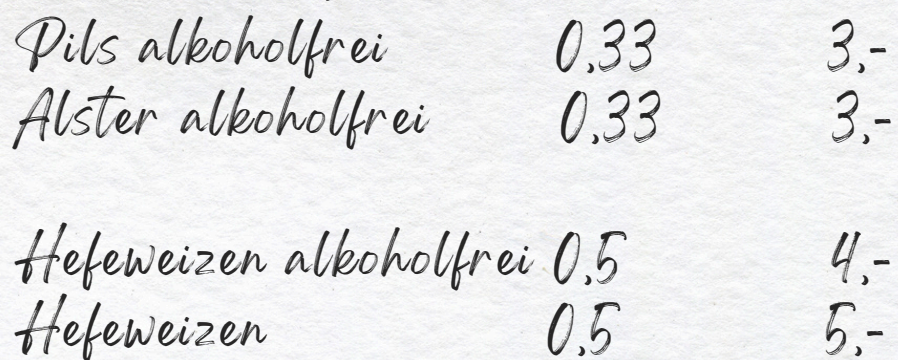 Pils alkoholfrei 0,33 3,-
Alster alkoholfrei 0,33 3,-
Hefeweizen alkoholfrei 0,5 4,-
Hefeweizen 0,5 5,-